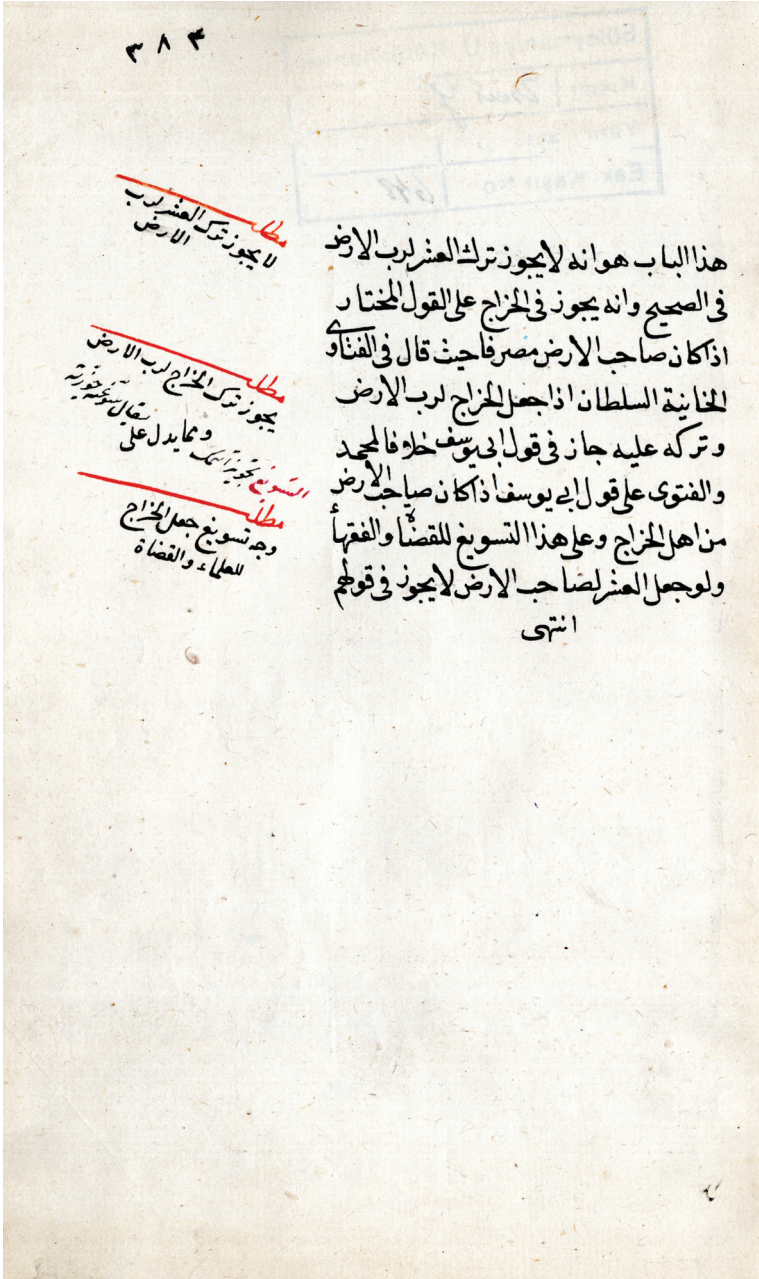 ٣٨٣
هذا الباب هو انه لا يجوز ترك العشر لرب الارض
فى الصحيح وانه يجوز فى الخراج على القول المختار
اذا كان صاحب الارض مصرفا حيث قال فى الفتاوى
الخانية السلطان اذا جعل الخراج لرب الارض
وتركه عليه جاز فى قول ابى يوسف خلافا لمحمد
والفتوى على قول ابى يوسف اذا كان صاحب الارض
من اهل الخراج وعلى هذا التسويغ للقضاة والفقهاء
ولو جعل العشر لصاحب الارض لا يجوز فى قولهم
انتهى
مطلب
لا يجوز ترك العشر لرب
الارض
مطلب
يجوز ترك الخراج لرب الارض
ومما يدل على
التسويغ تجويز ايتمك يقال سوغته جوزته
مطلب
وجه تسويغ جعل الخراج
للعلماء والقضاة